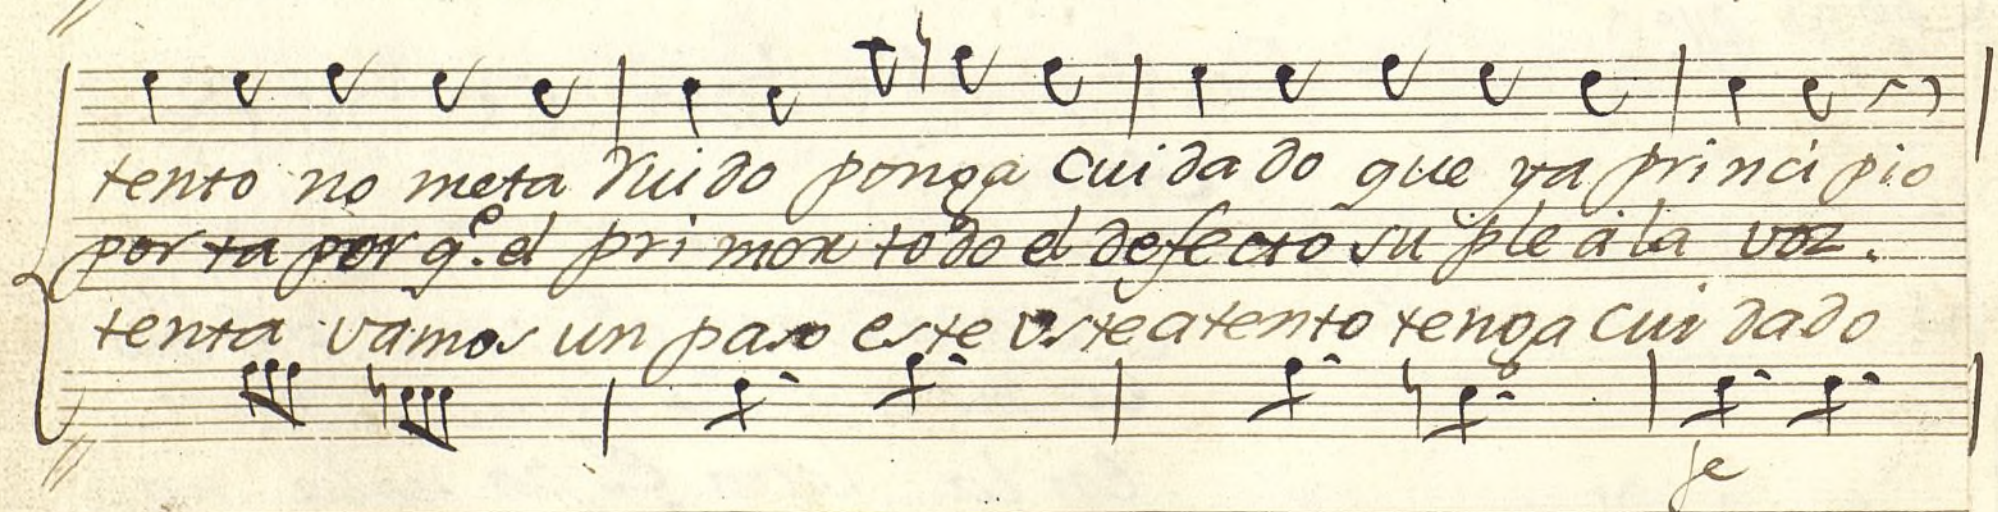 tento no meta Ruido ponga cuidado que va principio
porta porq.e el primor todo el defecto suple á la voz.
tenta vamos un paso este vste atento tenga cuidado
fe